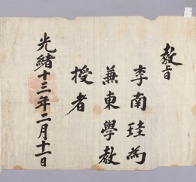 教旨
李南珪為
兼東學教
授者
光緒十三年二月十一日